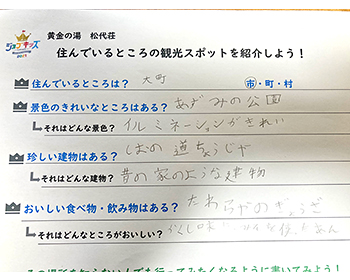 黄金の湯 松代荘
ジョブキッズ
住んでいるところの観光スポットを紹介しよう!
住んでいるところは? 大町 市・町・村
景色のきれいなところはある? あづみの公園
それはどんな景色? イルミネーションがきれい
珍しい建物はある? しおの道ちょうじや
それはどんな建物? 昔の家のような建物
おいしい食べ物・飲み物はある? たわらやのぎょうざ
それはどんなところがおいしい?